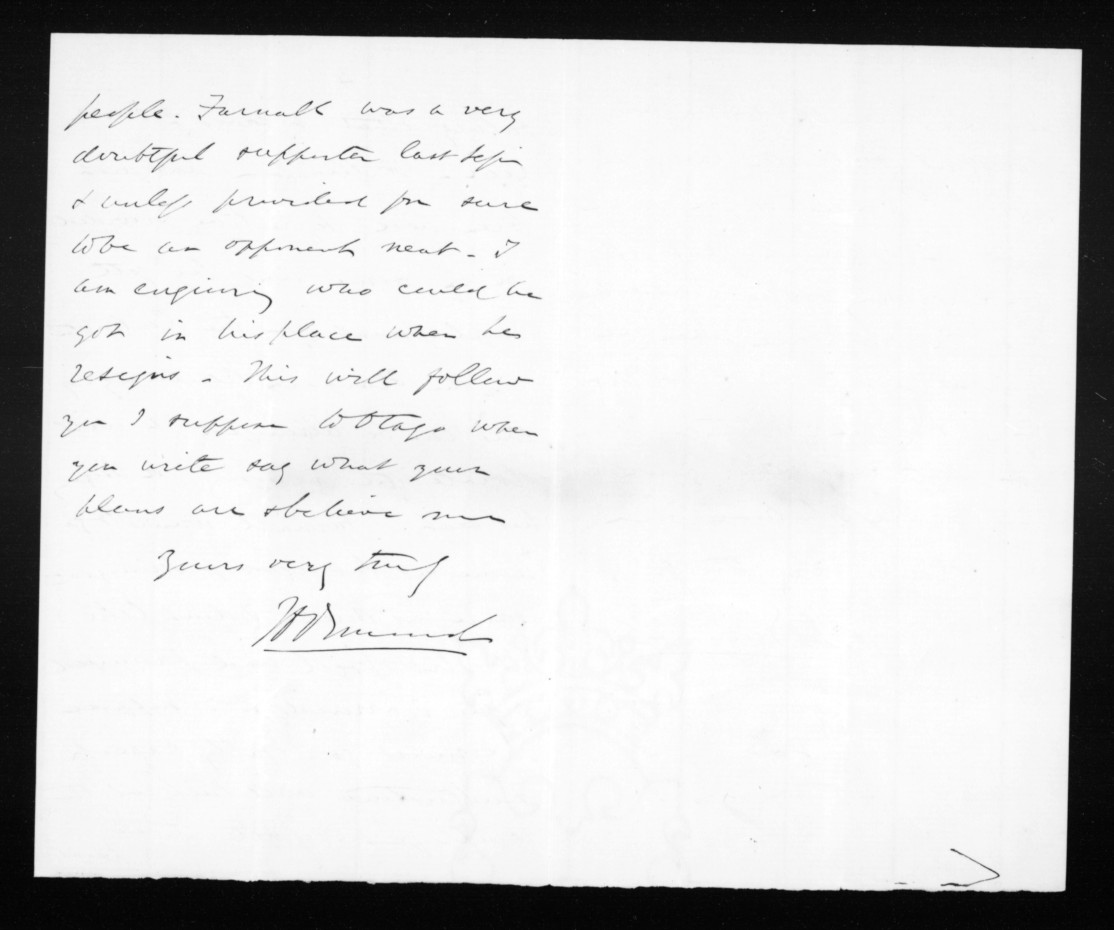 people. Farnall was a very
doubtful supporter last Sessn
& unless provided for sure
to be an opponent next - I
am enquiring who could be
got in his place when he
resigns - This will follow
you I suppose to Otago when
you write say what your
plans are & believe me
Yours very truly